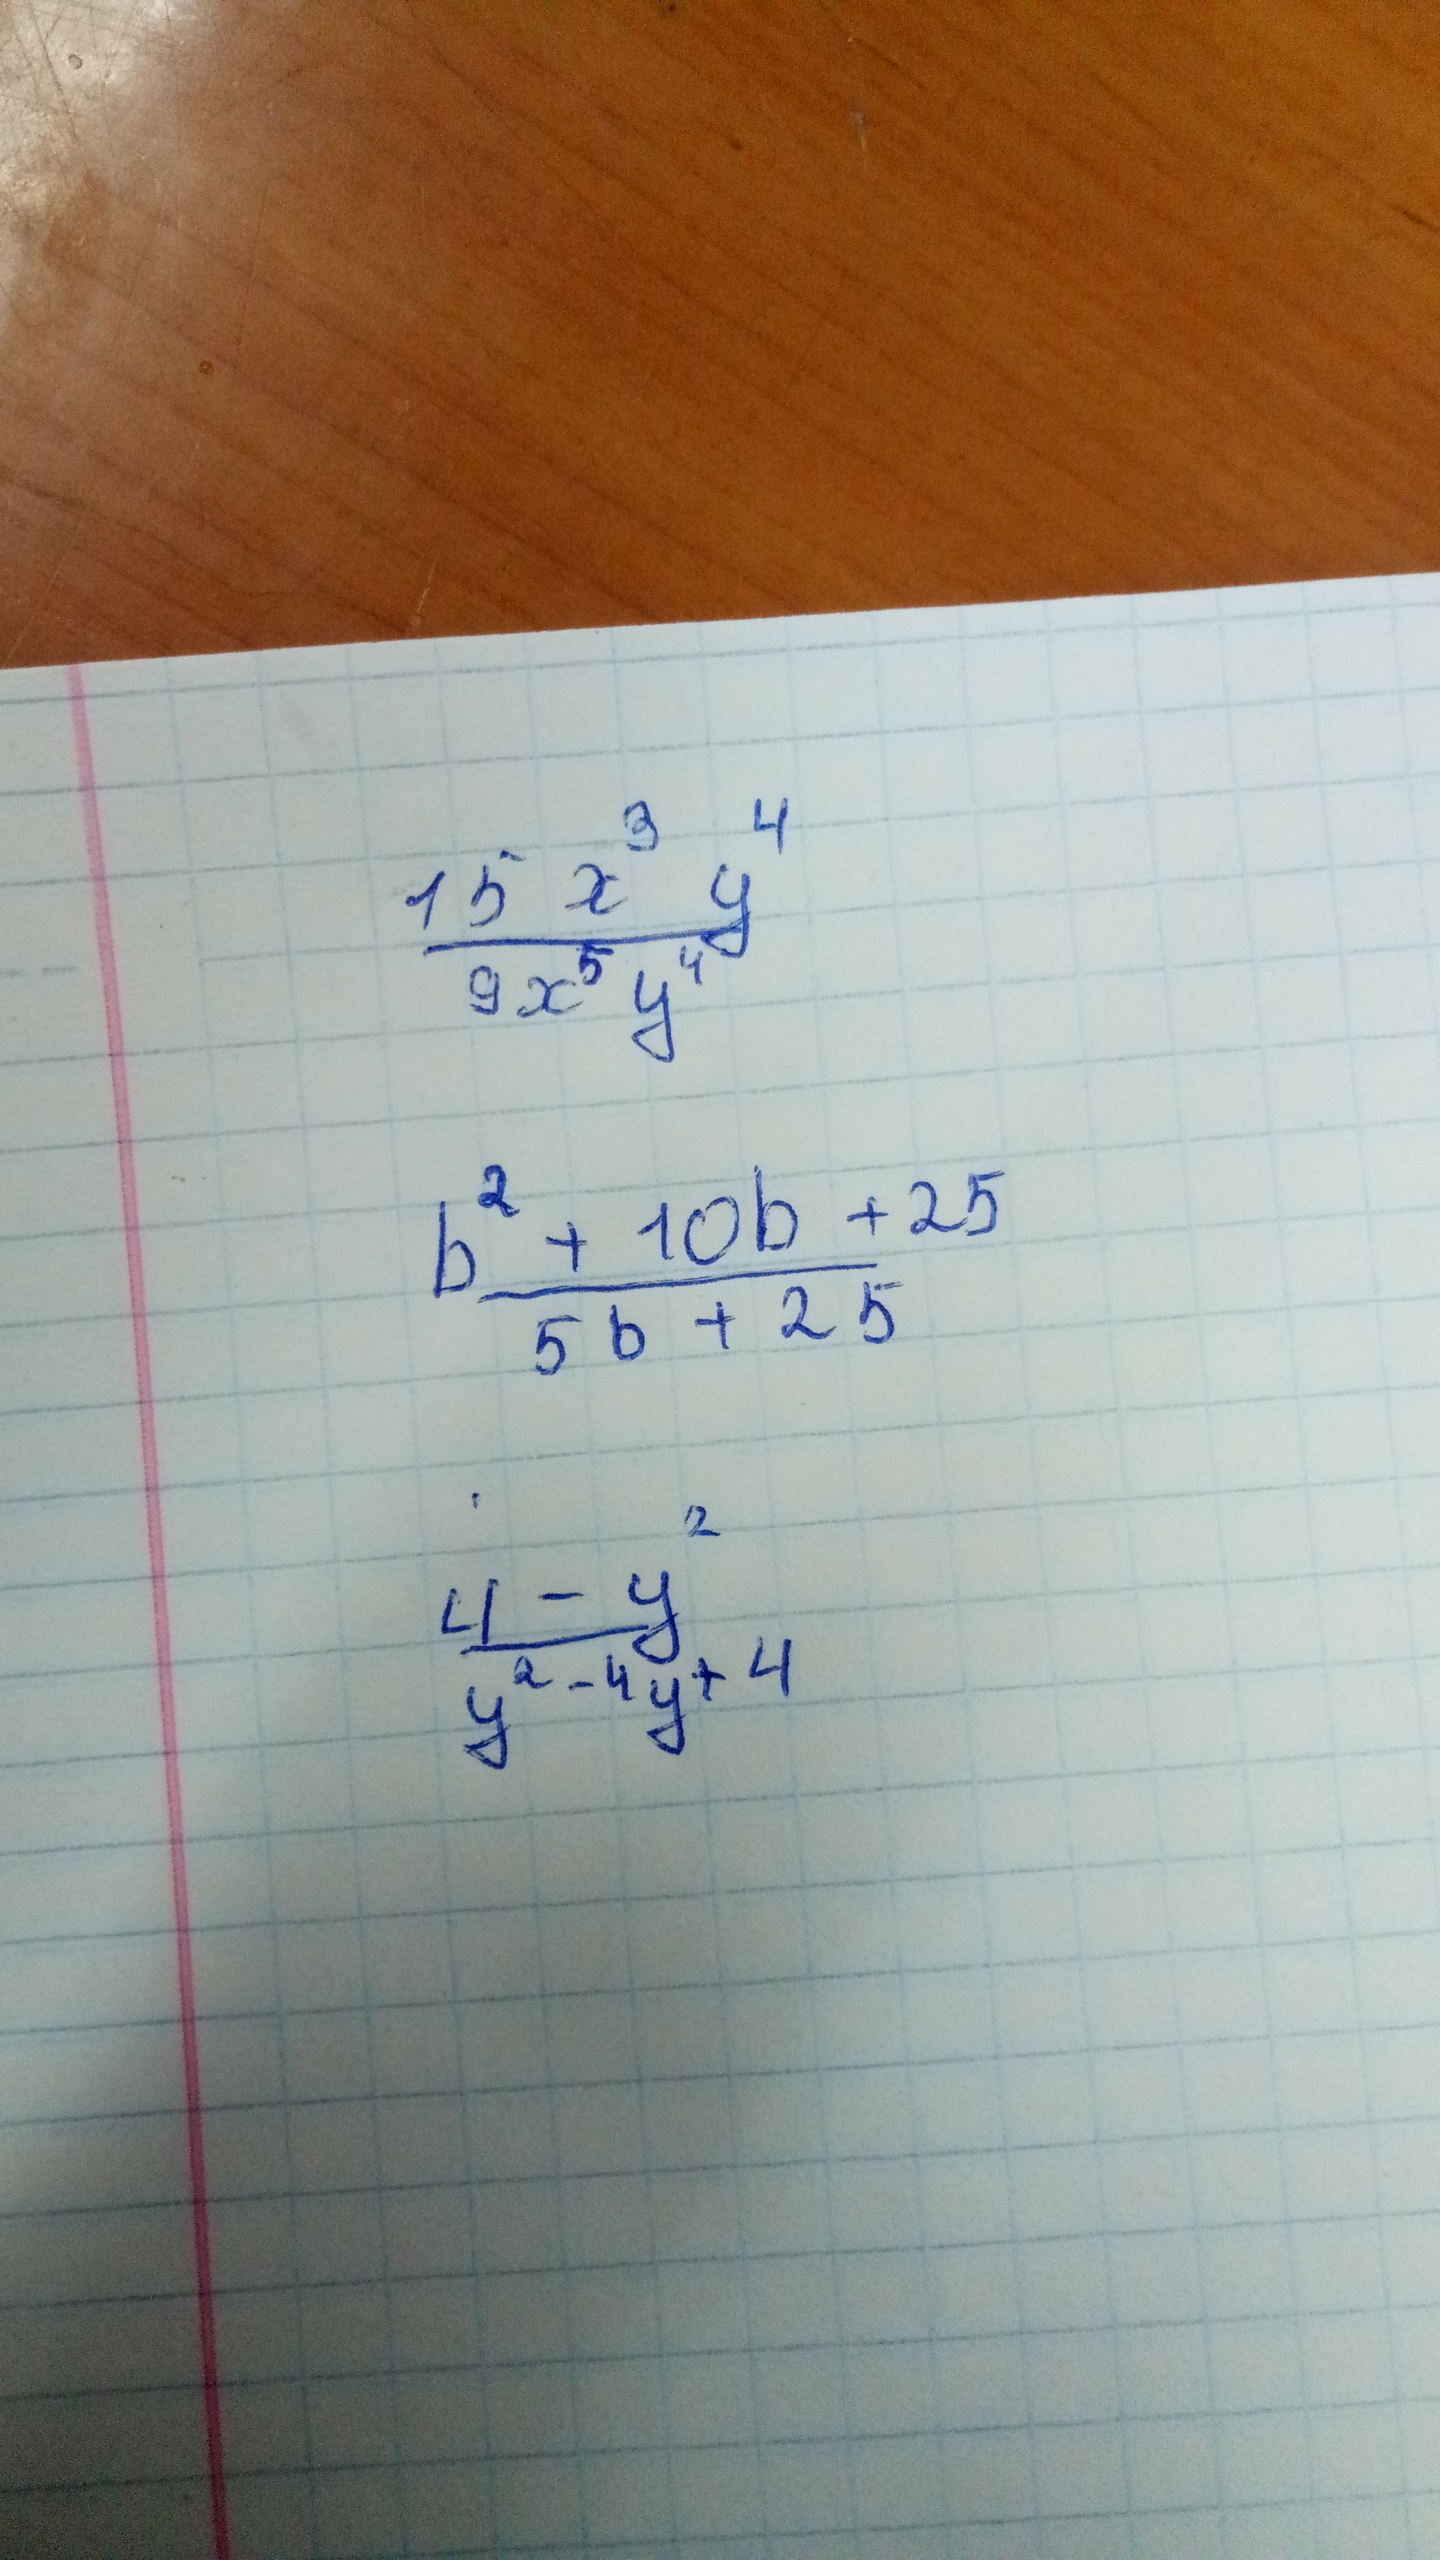 15 x³ y⁴
9x⁵ y⁴
b² + 10b + 25
5b + 25
4 - y²
y² - 4y + 4